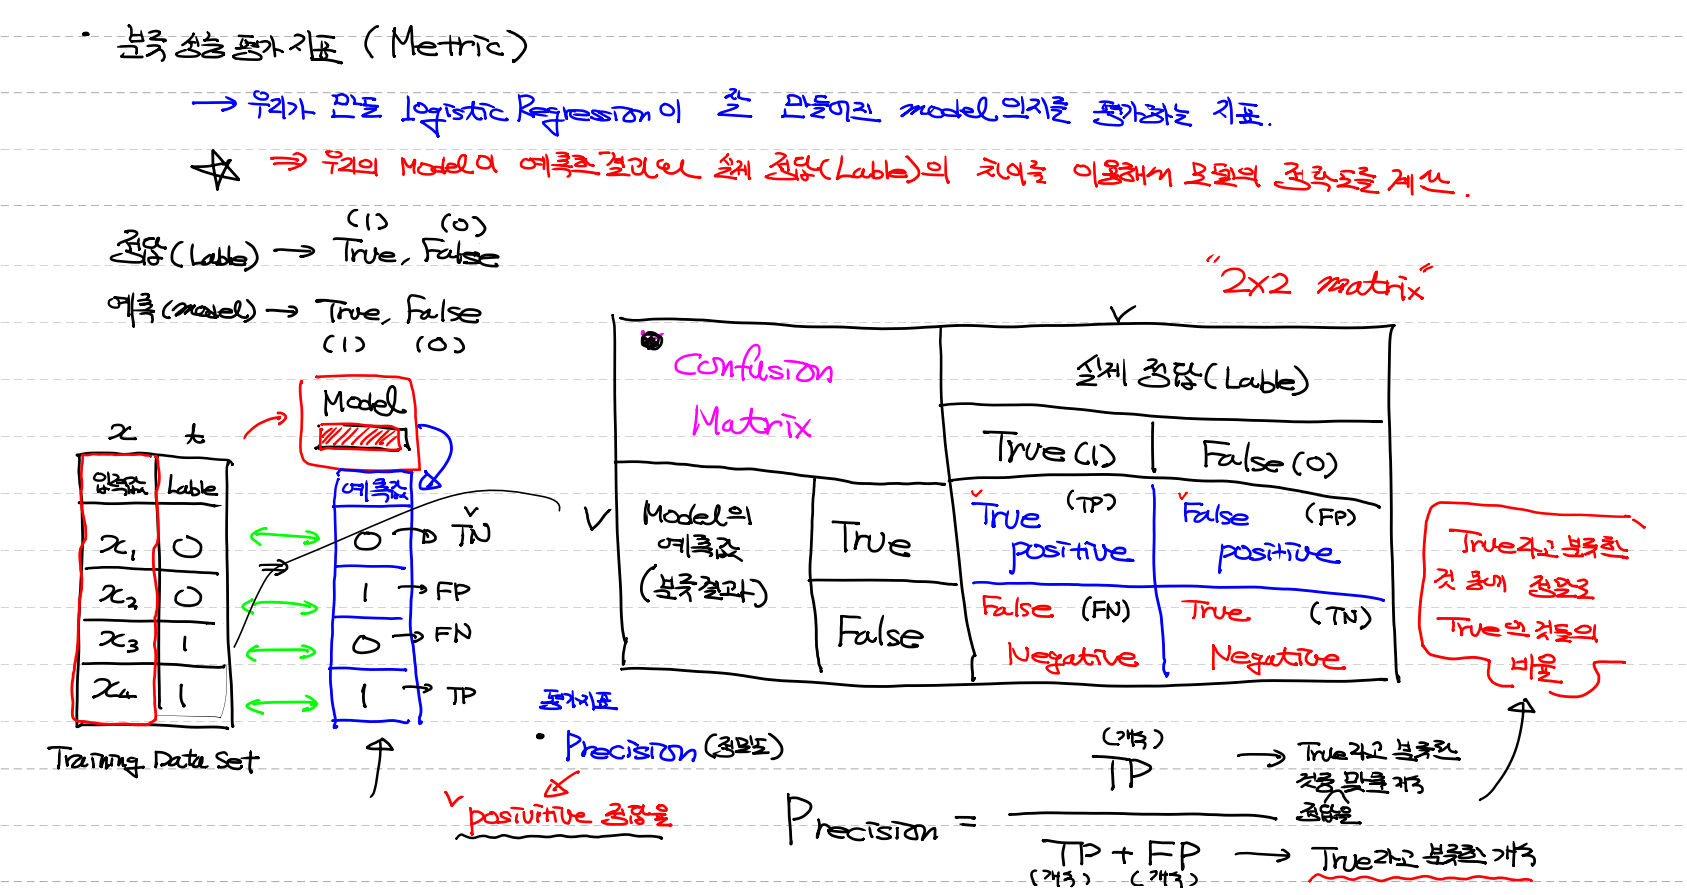 · 분류 성능 평가 지표 (Metric)
→ 우리가 만든 logistic Regression이 잘 만들어진 model인지를 평가하는 지표.
☆ ⇒ 우리의 Model이 예측한 결과와 실제 정답(Lable)의 차이를 이용해서 모델의 정확도를 계산.
(1) (0)
정답(Lable) → True, False
예측(model) → True, False
(1) (0)
"2x2 matrix"
Model
x t
입력값 Lable
x₁ 0
x₂ 0
x₃ 1
x₄ 1
Training Data Set
예측값
0 → TN
1 → FP
0 → FN
1 → TP
Confusion
Matrix
실제 정답(Lable)
True(1) False(0)
Model의
예측값
(분류결과)
True
False
True (TP)
positive
False (FP)
positive
False (FN)
Negative
True (TN)
Negative
True라고 분류한
것 중에 정말로
True인 것들의
비율
평가지표
· Precision (정밀도)
posivitive 정답율
Precision =
(개수)
TP → True라고 분류한
것중 맞춘 개수
정답을
TP + FP → True라고 분류한 개수
(개수) (개수)